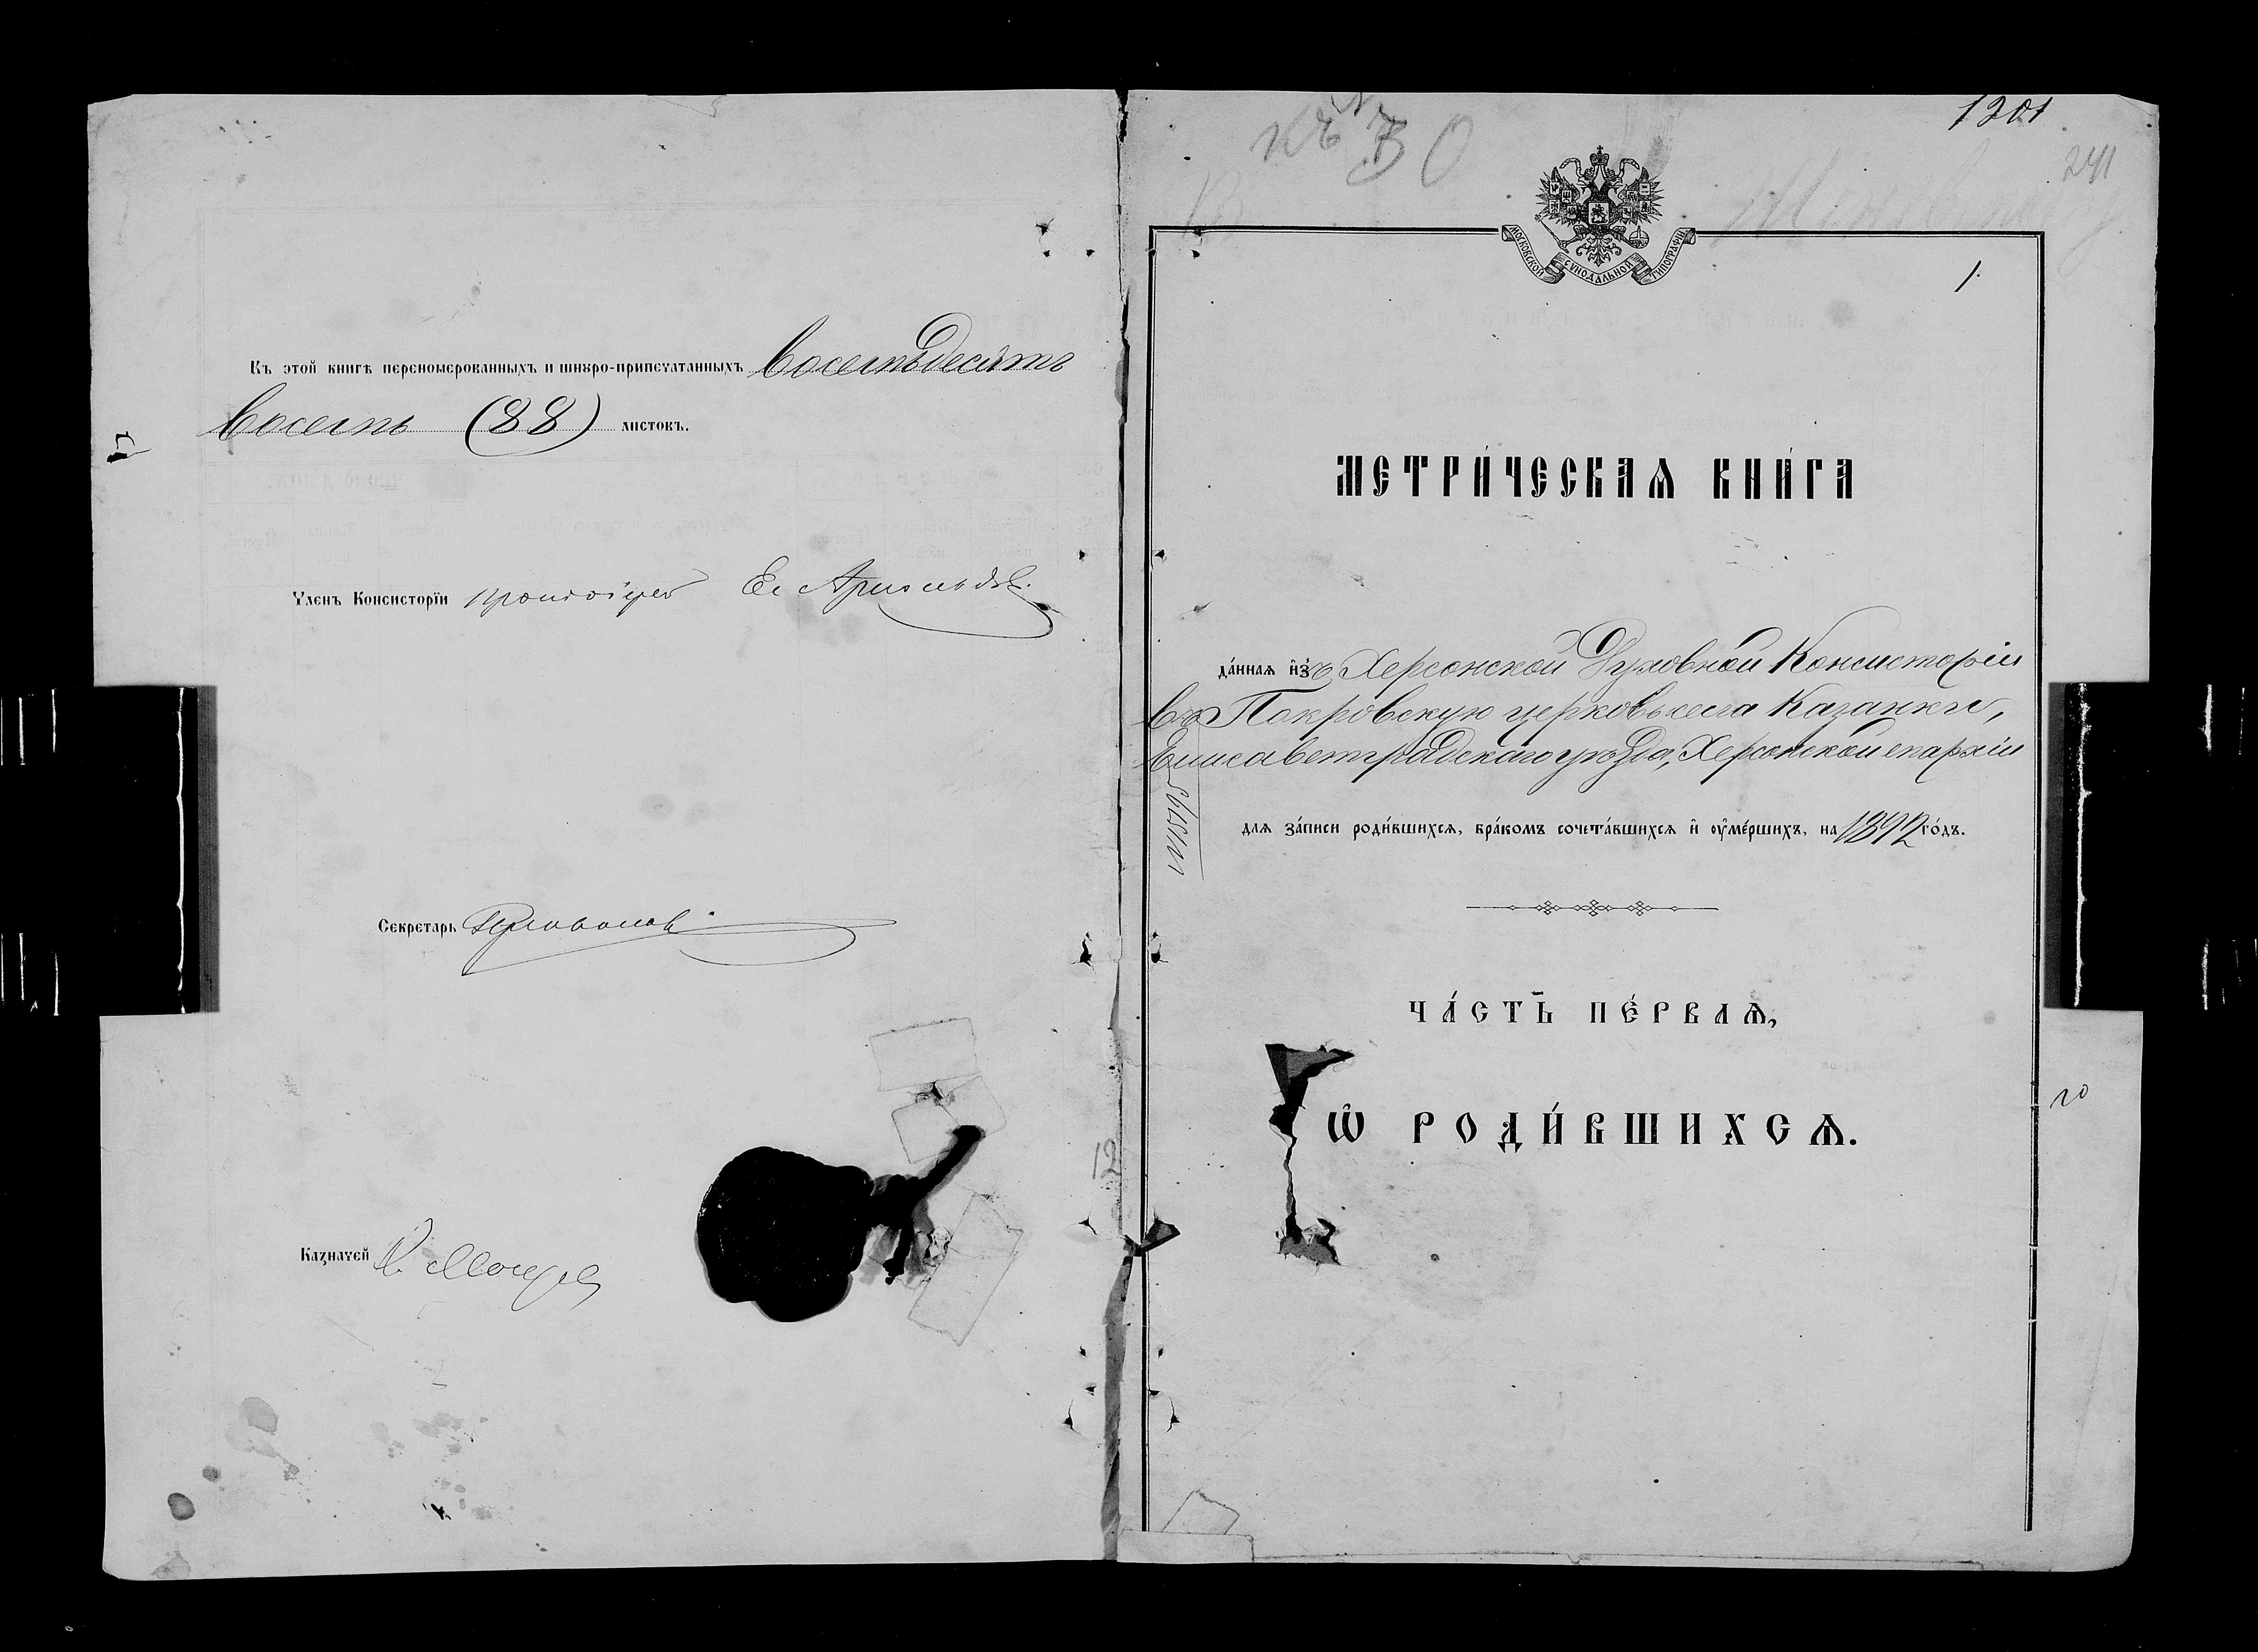 Къ этой книгѣ перенумерованныхъ и шнуро-припечатанныхъ восемьдесятъ
восемь (88) листовъ.
Членъ Консисторіи протоіерей
Секретарь
Казначей
12
1201
241
къ
МОСКОВСКОЙ СѴНОДАЛЬНОЙ ТИПОГРАФІИ
1.
МЕТРИ́ЧЕСКАѦ КНИ́ГА
да́ннаѧ и҆зъ Херсонской Духовной Консисторіи
въ Покровскую церковь села Казанки,
Елисаветградскаго уѣзда, Херсонской епархіи
длѧ за́писи роди́вшихсѧ, бра́комъ сочета́вшихсѧ и҆ оу҆ме́ршихъ, на 1892 го́дъ.
ЧА́СТЬ ПЕ́РВАѦ,
Ѡ҆ РОДИ́ВШИХСѦ.